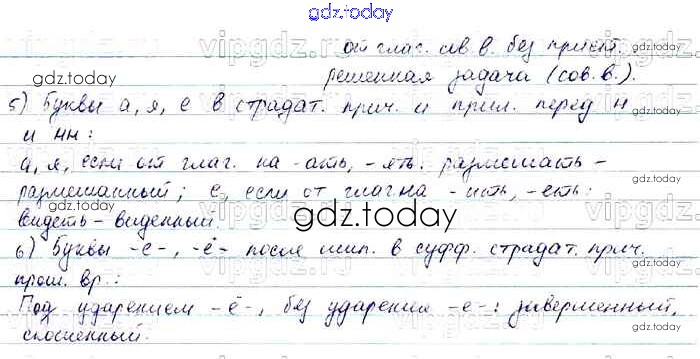 gdz.today
от глаг. сов.в. без прист.:
gdz.today
решенная задача (сов.в.).
gdz.today
5) Буквы а, я, е в страдат. прич. и прил. перед н
и нн:
а, я, если от глаг. на -ать, -ять: размешать –
размешанный; е, если от глаг на -ить, -еть:
видеть – виденный.
gdz.today
6) Буквы -е-, -ё- после шип. в суфф. страдат. прич.
прош. вр.:
Под ударением -ё-, без ударения -е-: завершенный,
скошенный.